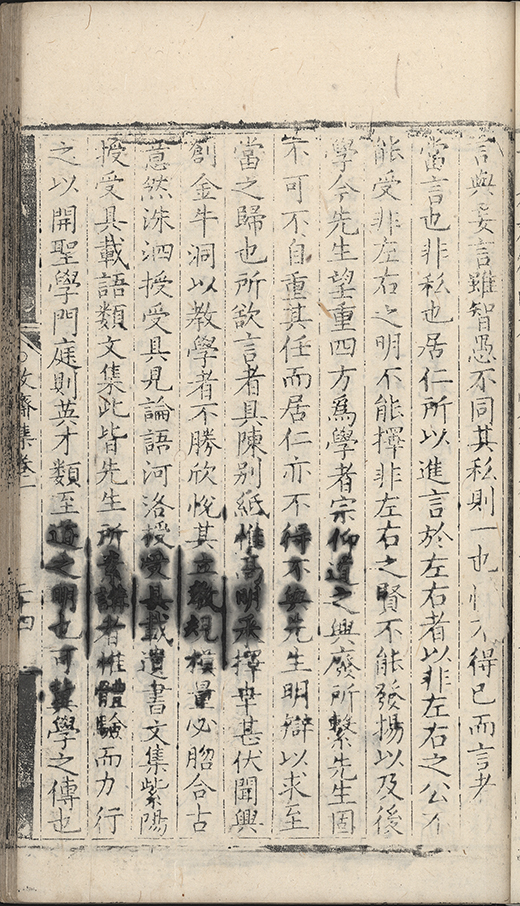 言與妄言雖智愚不同其私則一也惟不得已而言者
當言也非私也居仁所以進言於左右者以非左右之公不
能受非左右之明不能擇非左右之賢不能發揚以及後
學今先生望重四方爲學者宗仰道之興廢所繫先生固
不可不自重其任而居仁亦不得不安先生明辯以求至
當之歸也所欲言者具陳别紙惟高明采擇幸甚伏聞興
創金牛洞以教學者不勝欣悅其立教規模量必脗合古
意然洙泗授受具見論語河洛授受具載遺書文集紫陽
授受具載語類文集此皆先生所素講者惟體驗而力行
之以開聖學門庭則英才類至道之明也可冀學之傳也
敬齋集卷一
二十四